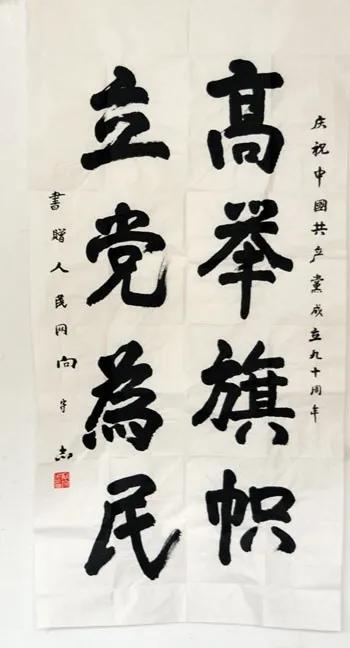 庆祝中國共产黨成立九十周年
高举旗帜
立党為民
書赠人民网向守志